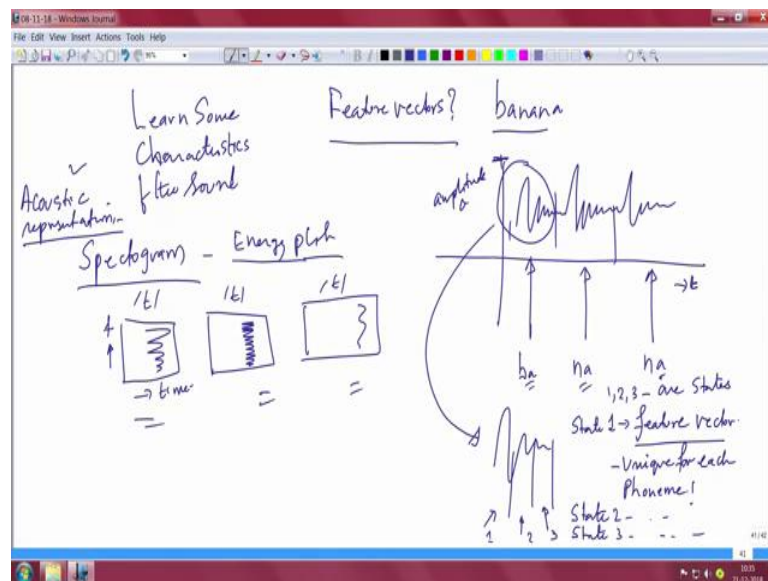 08-11-18 - Windows Journal
File Edit View Insert Actions Tools Help
Learn Some
Characteristics
of the Sound
Feature vectors?
banana
Acoustic
representation
Spectogram - Energy plot
/t/ /t/ /t/
→ time
amplitude
→ t
ba na na
1,2,3 - are States
State 1 → feature vector
- Unique for each
Phoneme!
State 2 -
State 3 -
1 2 3
41/42
41
10:35